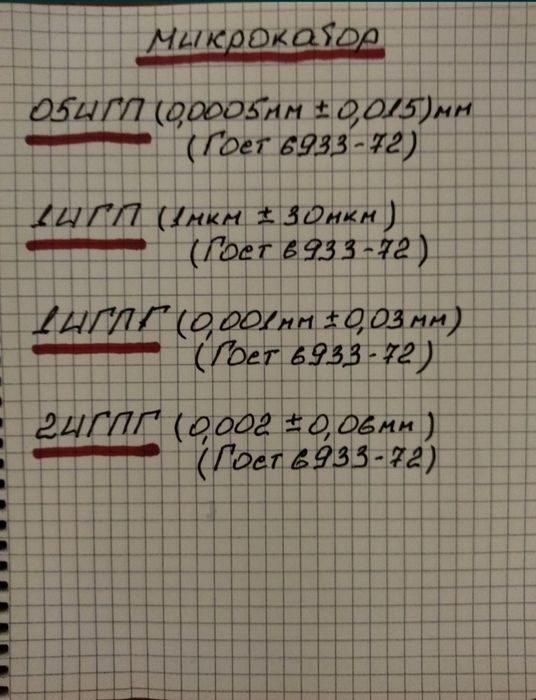 Микрокатор
05ИГП (0,0005мм ± 0,015) мм
(Гост 6933-72)
1ИГП (1мкм ± 30мкм)
(Гост 6933-72)
1ИГПГ (0,001мм ± 0,03мм)
(Гост 6933-72)
2ИГПГ (0,002 ± 0,06мм)
(Гост 6933-72)